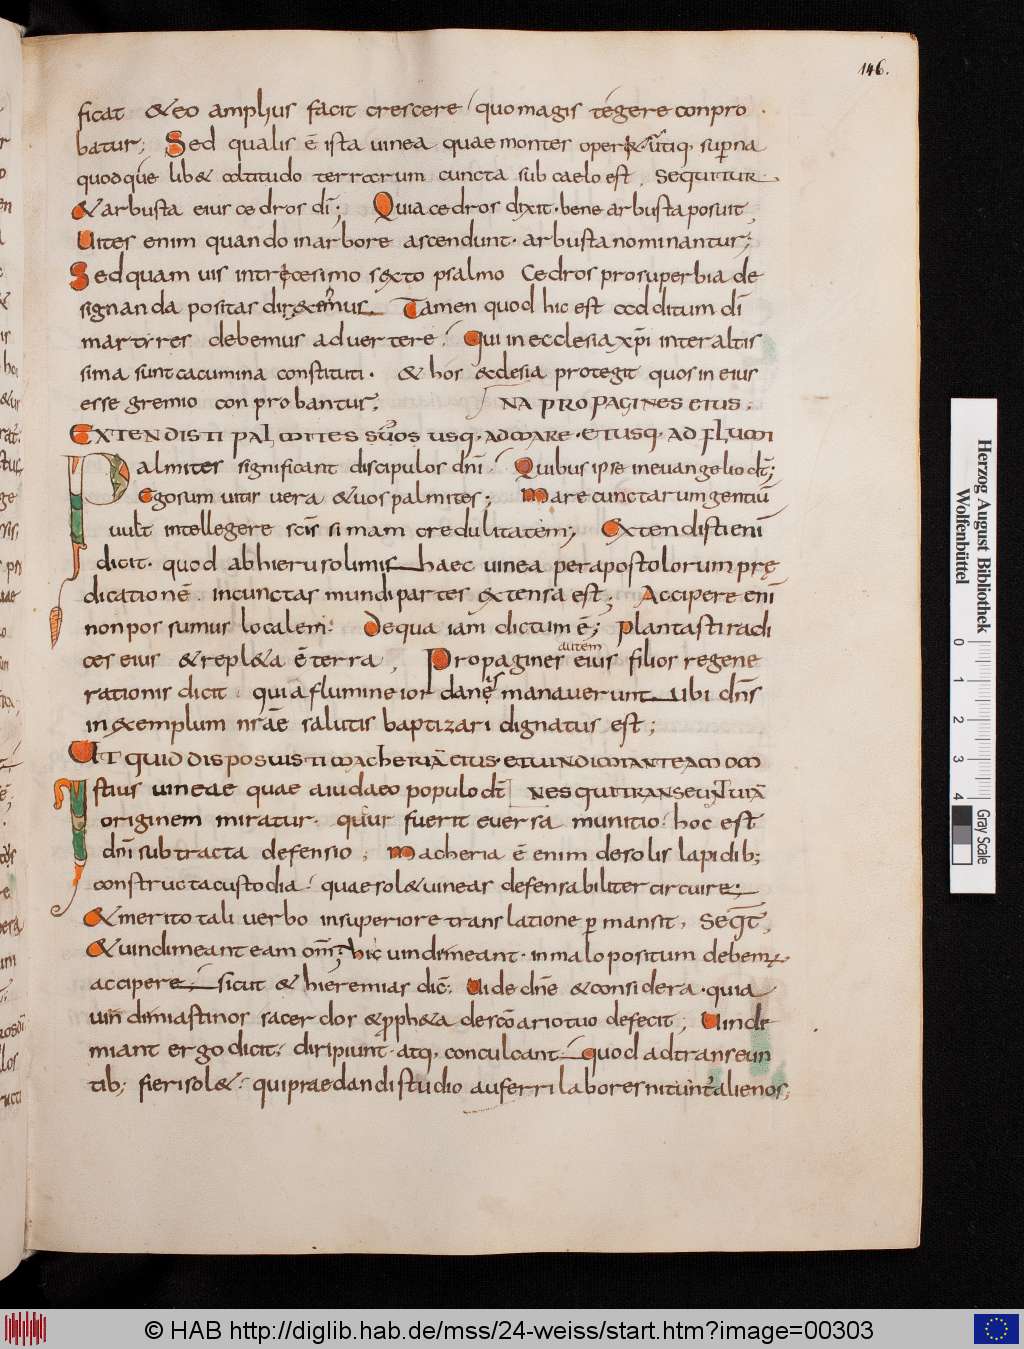 146.
ficat &eo amplius facit crescere quomagis tegere conpro
batur; Sed qualis ē ista uinea quae montes operuit utiq, superna
quodque lib& altitudo terrarum cuncta sub caelo est. Sequitur
& arbusta eius cedros dī; Quia cedros dixit· bene arbusta posuit,
Uites enim quando in arbore ascendunt· arbusta nominantur;
Sed quam uis in tricesimo sexto psalmo Cedros pro superbia de
signanda positas dixerimus Tamen quod hic est additum dī
martyres debemus aduertere. Qui in ecclesia xpī inter altis
sima sunt cacumina constituti· & hos ecclesia protegit quos in eius
esse gremio conprobantur; NA PROPAGINES EIUS;
EXTENDISTI PALMITES SUOS USQ, AD MARE· ET USQ, AD FLUMI
Palmites significant discipulos dnī. Quibus ipse in euangelio dt̄;
Ego sum uitis uera &uos palmites; Mare cunctarum gentiū
uult intellegere scīs simam credulitatem; Extendisti enī
dicit· quod ab hierusolimis haec uinea per apostolorum prę
dicationē. in cunctas mundi partes extensa est; Accipere enī
non possumus localem. De qua iam dictum ē; Plantasti radi
ces eius &repl&a ē terra, Propagines autem eius filios regene
rationis dicit. quia flumine iordanes manauerunt ubi dnīs
in exemplum nrāe salutis baptizari dignatus est;
UT QUID DISPOSUISTI MACHERIĀ EIUS· ET UINDIMIANT EAM OM
Istius uineae quae a iudaeo populo dt̄ NES QUI TRANSEUNT UIĀ
originem miratur· q̄ur fuerit euersa munitio. hoc est
dnī subtracta defensio; Maceria ē enim de solis lapidib;
constructa custodia. quae sol& uineas defensabiliter circuire;
& merito tali uerbo in superiore translatione p mansit, Seq̄t,
& uindimeant eam om̄s hic uindimeant· in malo positum debem;
accipere; sicut & hieremias dic̄: Uide dnē & considera· quia
uindimiasti nos sacerdos & proph&a de scō ario tuo defecit; Uinde
miant ergo dicit, diripiunt· atq, conculcant. Quod ad transeun
tib; fieri sol&. qui praedandi studio auferri labores nituntur alienos;
Herzog August Bibliothek
Wolfenbüttel
0 1 2 3 4
Gray Scale
© HAB http://diglib.hab.de/mss/24-weiss/start.htm?image=00303